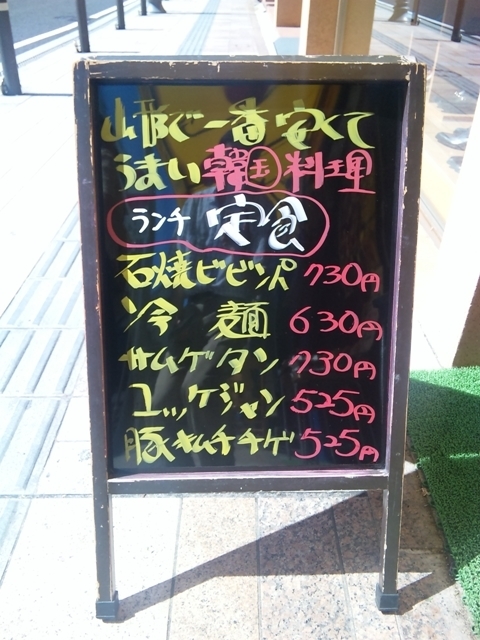 山形で一番安くて
うまい韓国料理
ランチ 定食
石焼ビビンパ 730円
冷 麺 630円
サムゲタン 730円
ユッケジャン 525円
豚キムチチゲ 525円